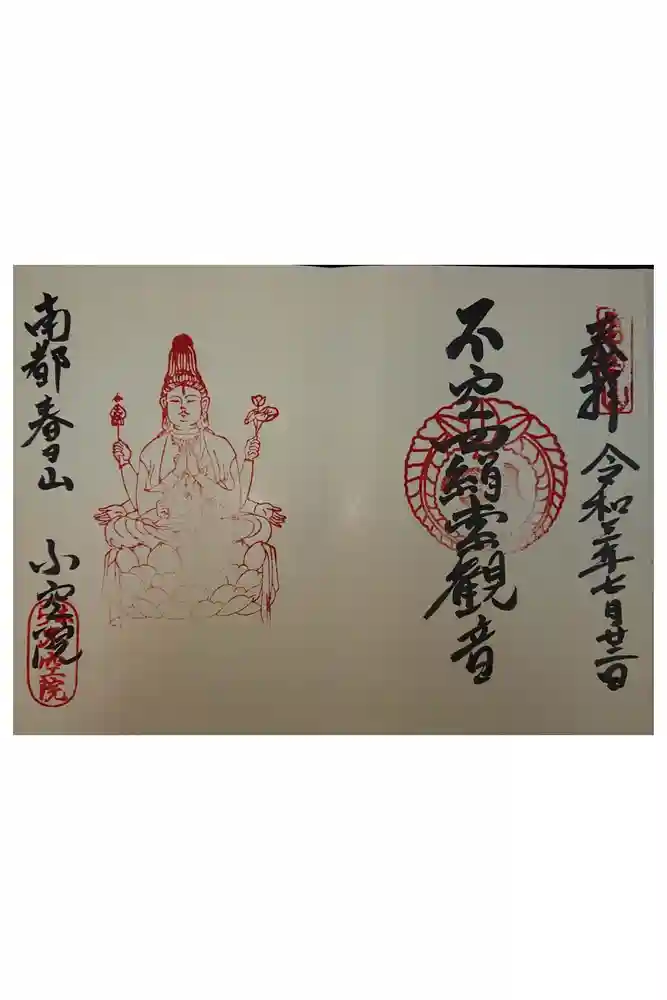 奉拝 令和三年七月廿二日
不空羂索観音
南都 春日山 不空院